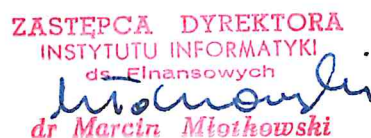 ZASTĘPCA DYREKTORA
INSTYTUTU INFORMATYKI
ds. Finansowych
dr Marcin Młotkowski